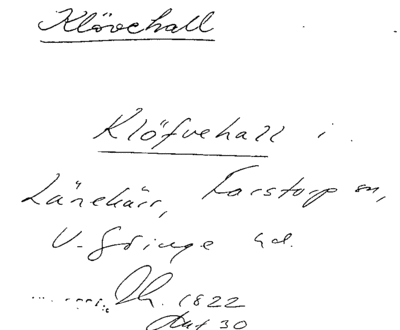 Klövehall
Klöfvehall i
Länekärr, Forstorp sn,
V. Göinge hd.
Th. 1822